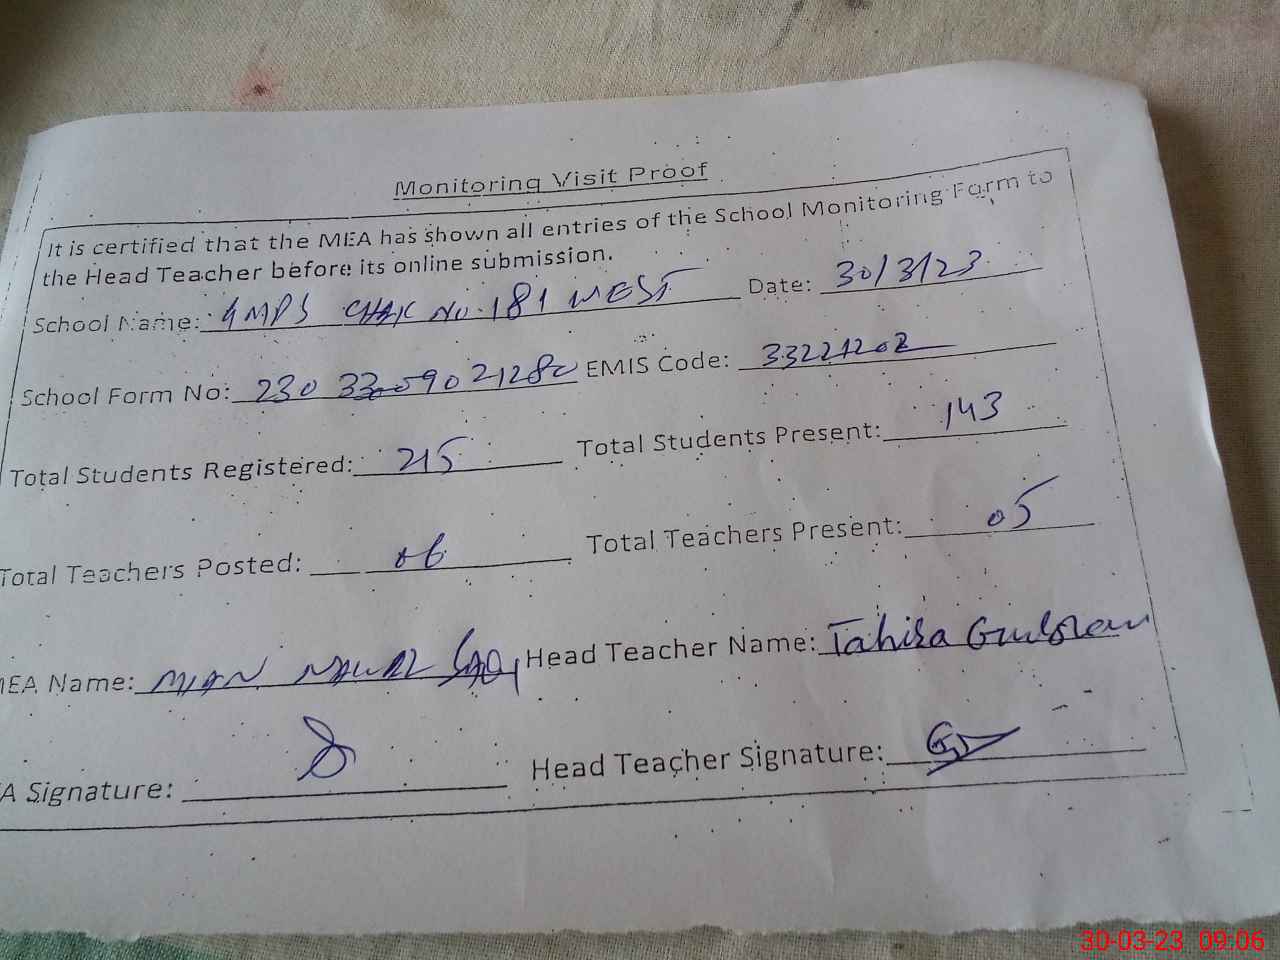 Monitoring Visit Proof
It is certified that the MEA has shown all entries of the School Monitoring Form to
the Head Teacher before its online submission.
School Name: GMPS CHAK No. 181 WEST Date: 30/3/23
School Form No: EMIS Code: 33221202
Total Students Registered: 215 Total Students Present: 143
Total Teachers Posted: 06 Total Teachers Present: 05
MEA Name: MIAN NAWAZ Head Teacher Name: Tahira
A Signature: Head Teacher Signature:
30-03-23 09:06